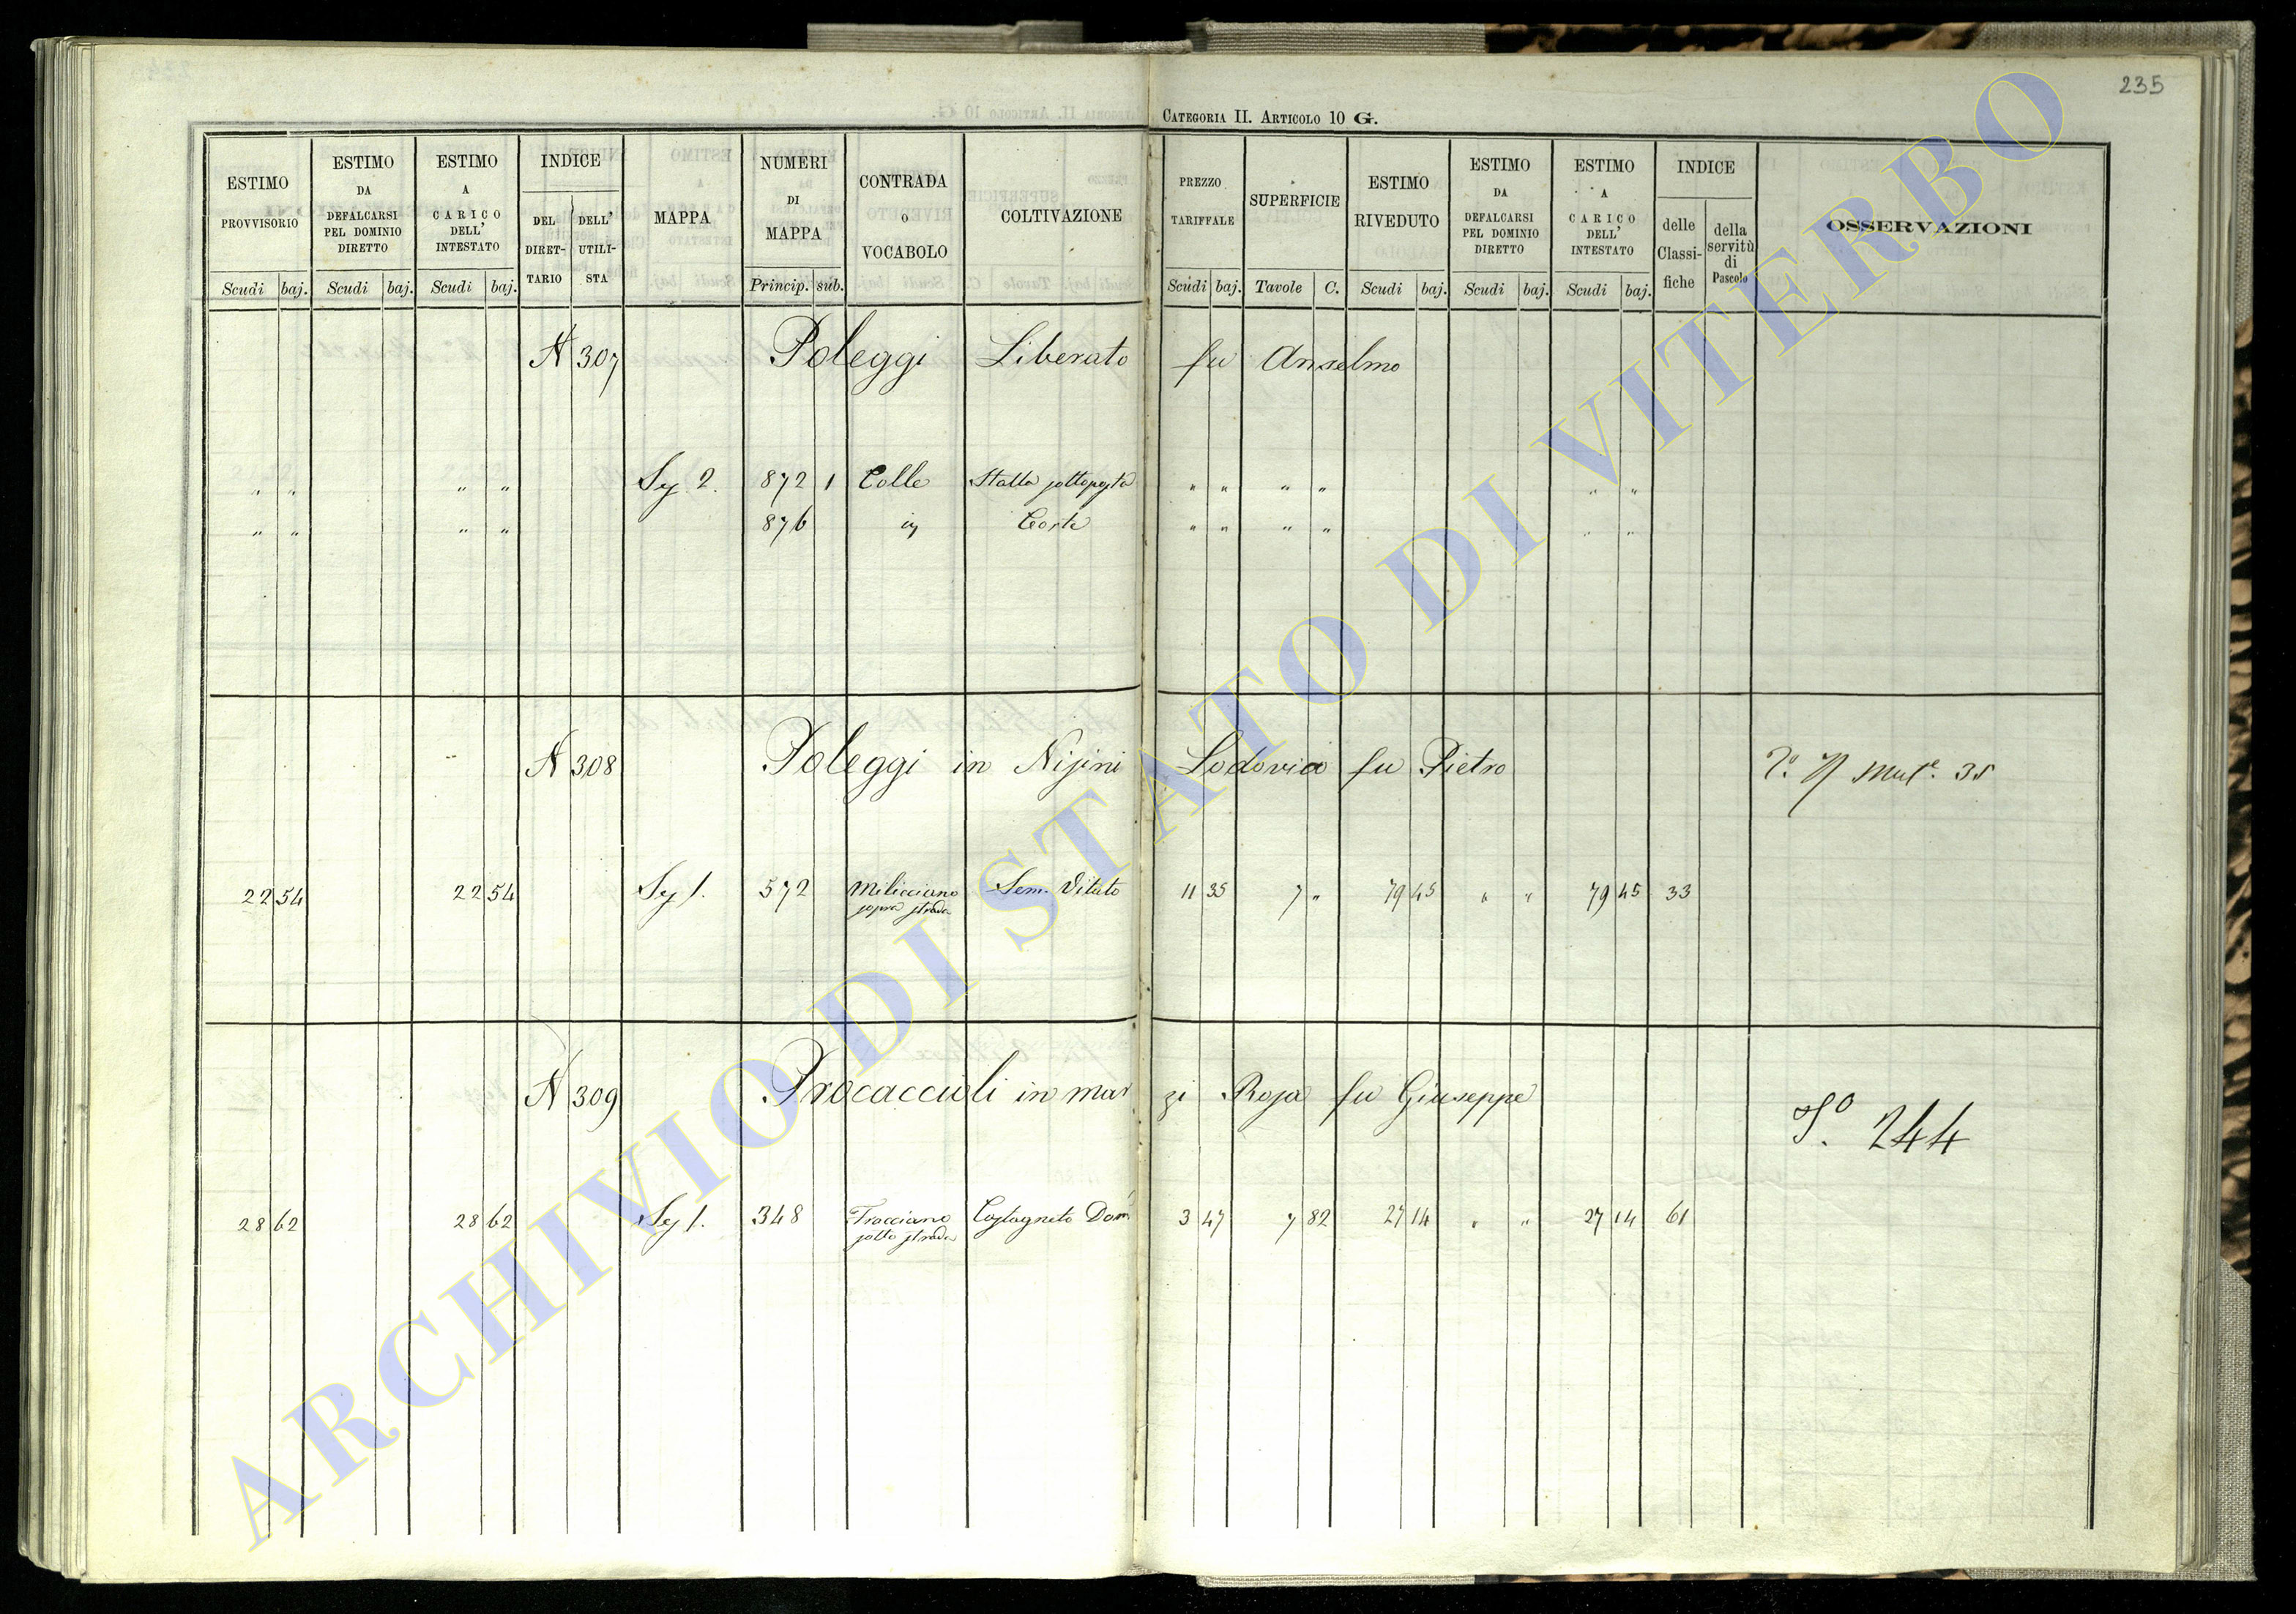 235
CATEGORIA II. ARTICOLO 10 G.
ESTIMO PROVVISORIO Scudi baj.
ESTIMO DA DEFALCARSI PEL DOMINIO DIRETTO Scudi baj.
ESTIMO A CARICO DELL' INTESTATO Scudi baj.
INDICE DEL DIRET-TARIO DELL' UTILI-STA
MAPPA
NUMERI DI MAPPA Princip. sub.
CONTRADA O VOCABOLO
COLTIVAZIONE
PREZZO TARIFFALE Scudi baj.
SUPERFICIE Tavole C.
ESTIMO RIVEDUTO Scudi baj.
ESTIMO DA DEFALCARSI PEL DOMINIO DIRETTO Scudi baj.
ESTIMO A CARICO DELL' INTESTATO Scudi baj.
INDICE delle Classi-fiche della servitù di Pascolo
OSSERVAZIONI
N 307 Poleggi Liberato fu Anselmo
" " " " Sez 2. 872 1 Colle Stalla sottoposta " " " " " "
" " " " 876 id Corte " " " " " "
N 308 Poleggi in Nisini Lodovica fu Pietro
35
22 54 22 54 Sez 1. 572 Milicciano sopra strada Sem. Vitato 11 35 7 " 79 45 " " 79 45 33
N 309 Procaccioli in mar zi Rosa fu Giuseppe
244
28 62 28 62 Sez 1. 348 Tracciano sotto strada Castagneto Dom 3 47 7 82 27 14 " " 27 14 61
ARCHIVIO DI STATO DI VITERBO